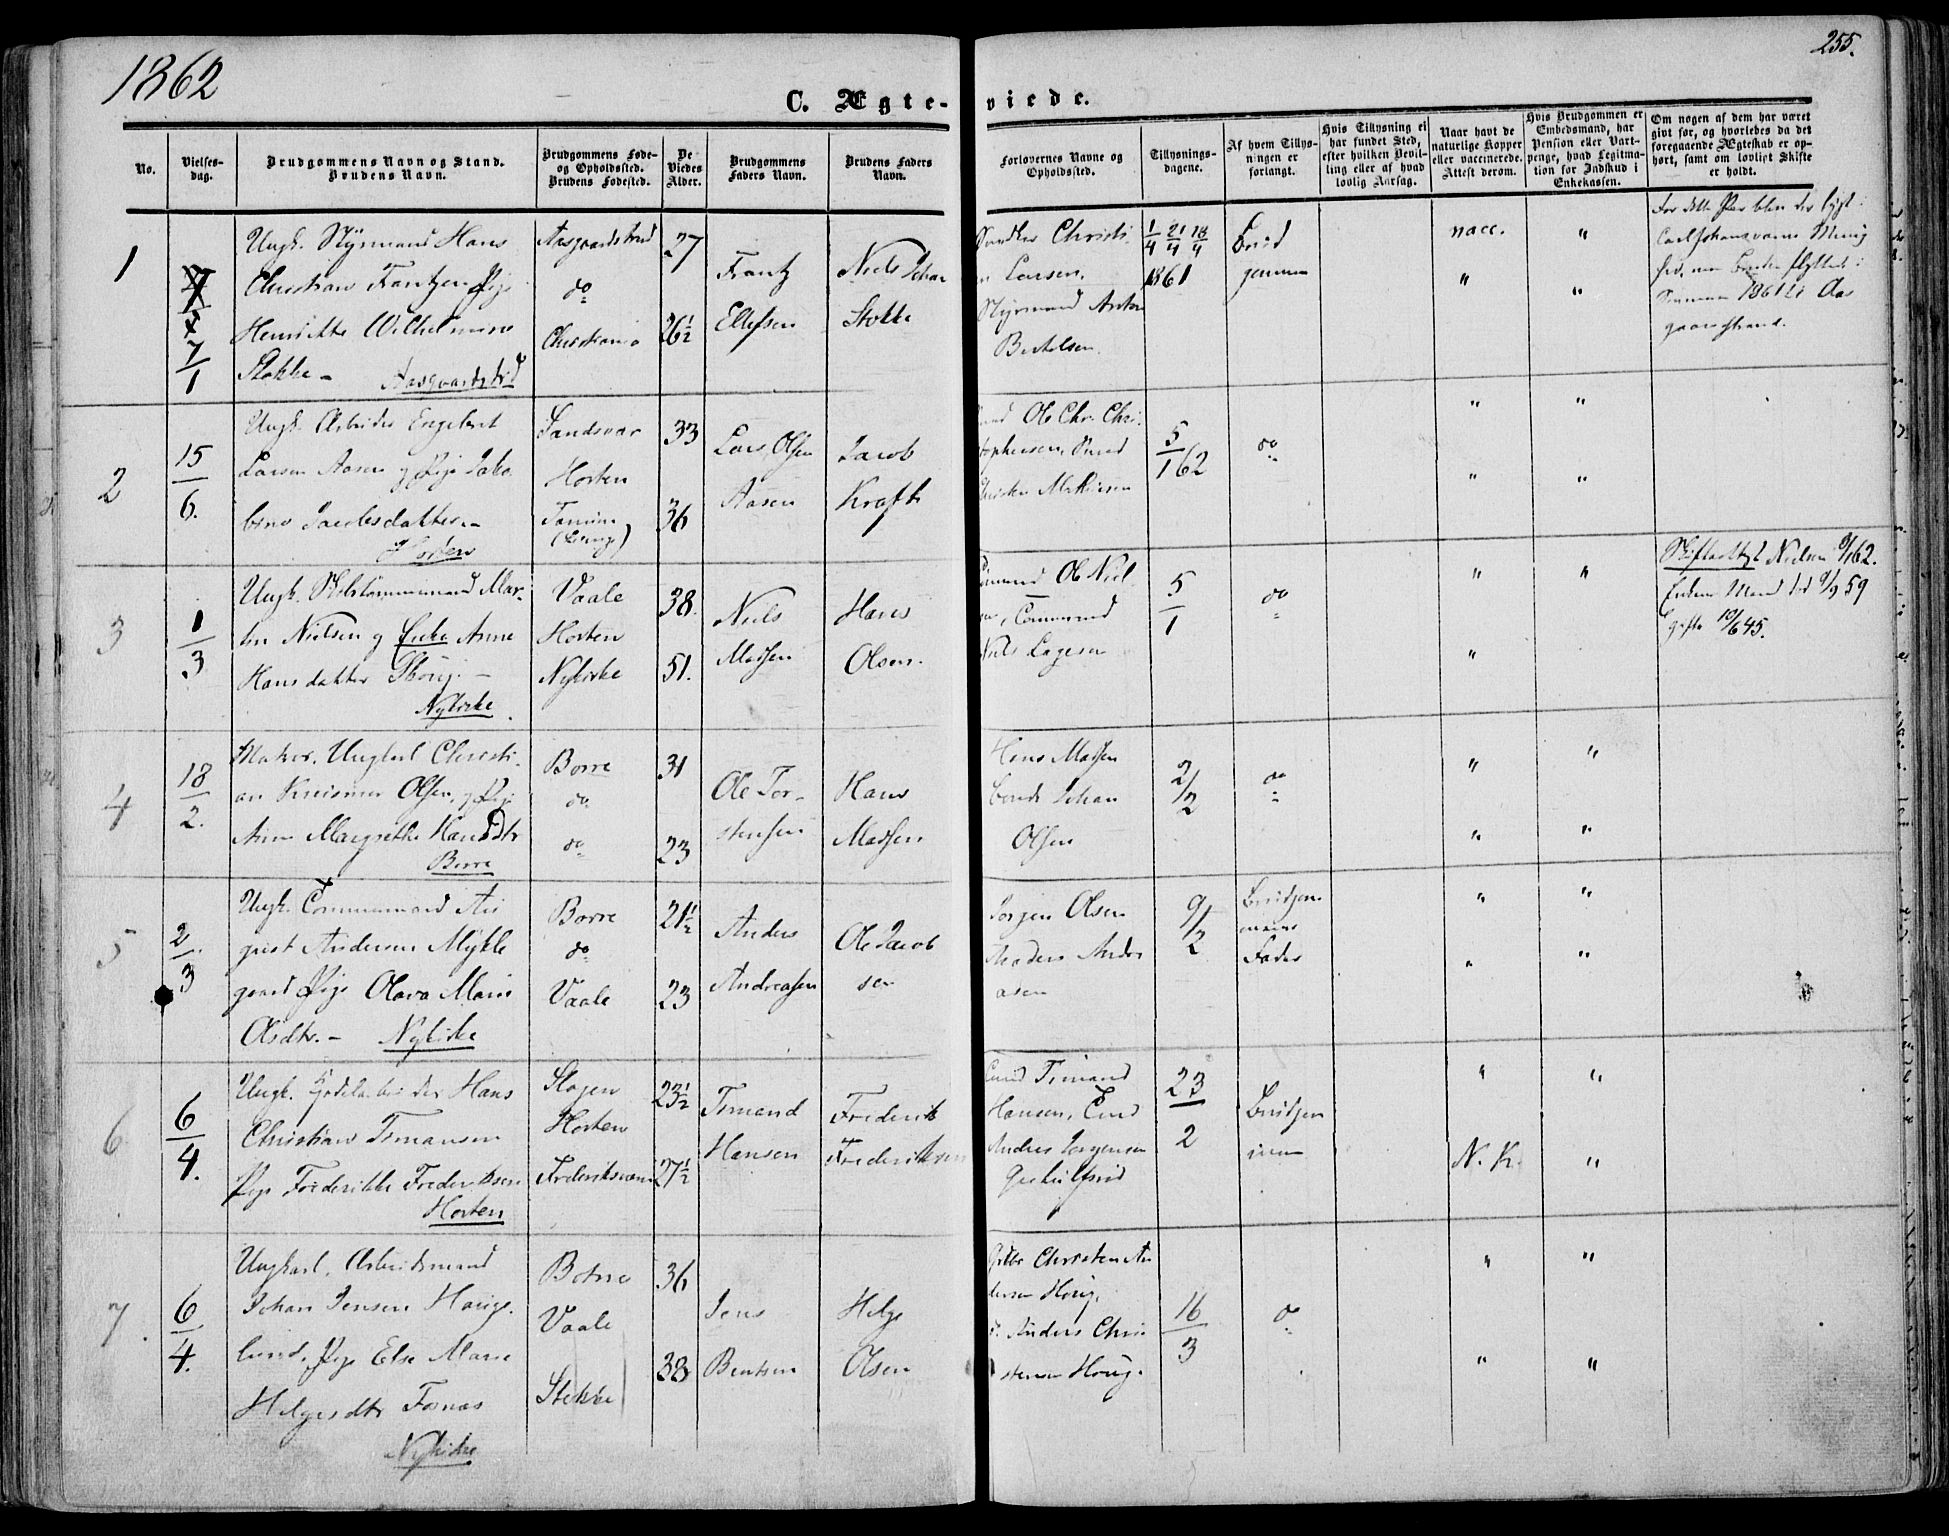 1862
255.
C. Ægte-viede.
No.
Vielses-dag.
Brudgommens Navn og Stand.
Brudens Navn.
Brudgommens Føde- og Opholdssted.
Brudens Fødested.
De Viedes Alder.
Brudgommens Faders Navn.
Brudens Faders Navn.
Forlovernes Navne og Opholdssted.
Tillysnings-dagene.
Af hvem Tillys-ningen er forlangt.
Hvis Tillysning ei har fundet Sted, efter hvilken Bevil-ling eller af hvad lovlig Aarsag.
Naar havt de naturlige Kopper eller vaccinerede. Attest derom.
Hvis Brudgommen er Embedsmand, har Pension eller Vart-penge, hvad Legitima-tion for Indskud i Enkekassen.
Om nogen af dem har været gift før, og hvorledes da det foregaaende Ægteskab er op-hørt, samt om lovligt Skifte er holdt.
1
7/1
Ungk. Styrmand Hans
Christian Frantzen Pige
Henriette Wilhelmine
Stokke -
Aasgaardstrd
Aasgaardstrand
do
Christiania
27
26½
Frantz
Ellefsen
Niels Johan
Stokke
Christi
Larsen.
Styrmand Anton
Bertelsen.
1/4 21/4 18/4
1861
Brud
gommen
vacc. "
" "
For dette Par blev der lyst
Carljohansværns Menig
hed, men Bruden flyttede
Sommeren 1861 til Aas
gaardstrand.
2
15/6.
Ungk. Arbeider Engebret
Larsen Aasen og Pige Jako
bine Jacobsdatter.-
Horten
Sandsvær
Horten
33
36
Lars Olsen
Aasen
Jacob
Kraft
Ole Chr. Chri
stophersen,
Mathisen
5/1 62
do
" "
" "
3
1/3
Ungk. Tømmermand Mar-
tin Nielsen og Enke Anne
Hansdatter -
Nykirke
Vaale
Horten
Nykirke
38.
51.
Niels
Madsen
Hans
Olsen.
Ole Niel
Niels Lagesen
5/1
do
" "
"
Skifteattest Nielsen /62.
Enkens Mand død 59
gifte 10/6 45.
4
18/2.
Ungkarl Christi-
an Olsen, og Pige
Anne Margrethe Hansdtr
Borre
Borre
do
do
31
23
Ole Tor-
stensen
Hans
Madsen
Hans Madsen
Johan
Olsen
2/2
do
" "
" "
5
2/3
Ungk. Tømmermand Au
gust Andersen Mykle
gaard Pige Olava Marie
Olsdtr. - Nykirke
Borre
do
Vaale
21½
23
Anders
Andreasen
Ole Jacob
sen
Jørgen Olsen
Anders Andre
asen
9/2
Brudgom
mens
Fader
" "
" "
6
6/4.
Ungk. Hans
Christian Tomansen
Pige Frederikke Frederiksen
Horten
Slagen
Horten
Frederiksværn
23½
27½
Tomand
Hansen
Frederik
Frederiksen
Tomand
Hansen,
Anders Jørgensen
23/2
Brudgom
men
" "
N. K. "
7.
6/4.
Ungkarl, Arbeidsmand
Johan Jensen Hauge-
lund, Pige Else Marie
Helgesdtr Fonaas
Nykirke
Botne
Vaale
Stokke
36
38
Jens
Bentsen
Helge
Olsen
Christen An
dersen Houg,
Anders Chri
stensen Houg.
16/3
do
" "
" "